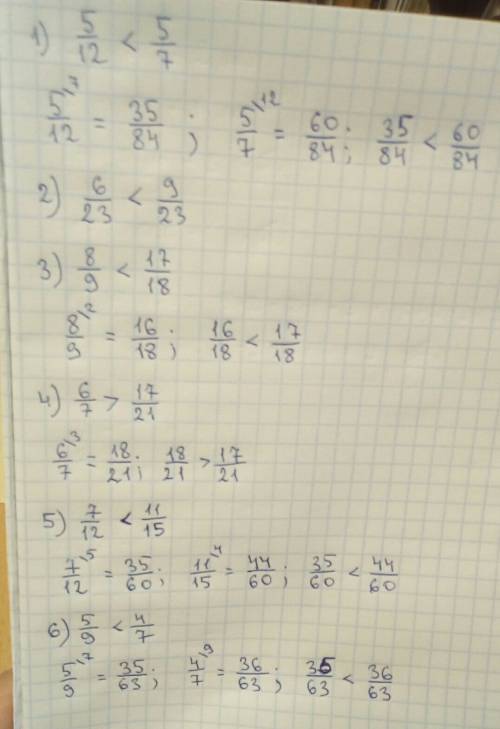 1) 5/12 < 5/7
5\7/12 = 35/84; 5\12/7 = 60/84; 35/84 < 60/84
2) 6/23 < 9/23
3) 8/9 < 17/18
8\2/9 = 16/18; 16/18 < 17/18
4) 6/7 > 17/21
6\3/7 = 18/21; 18/21 > 17/21
5) 7/12 < 11/15
7\5/12 = 35/60; 11\4/15 = 44/60; 35/60 < 44/60
6) 5/9 < 4/7
5\7/9 = 35/63; 4\9/7 = 36/63; 35/63 < 36/63